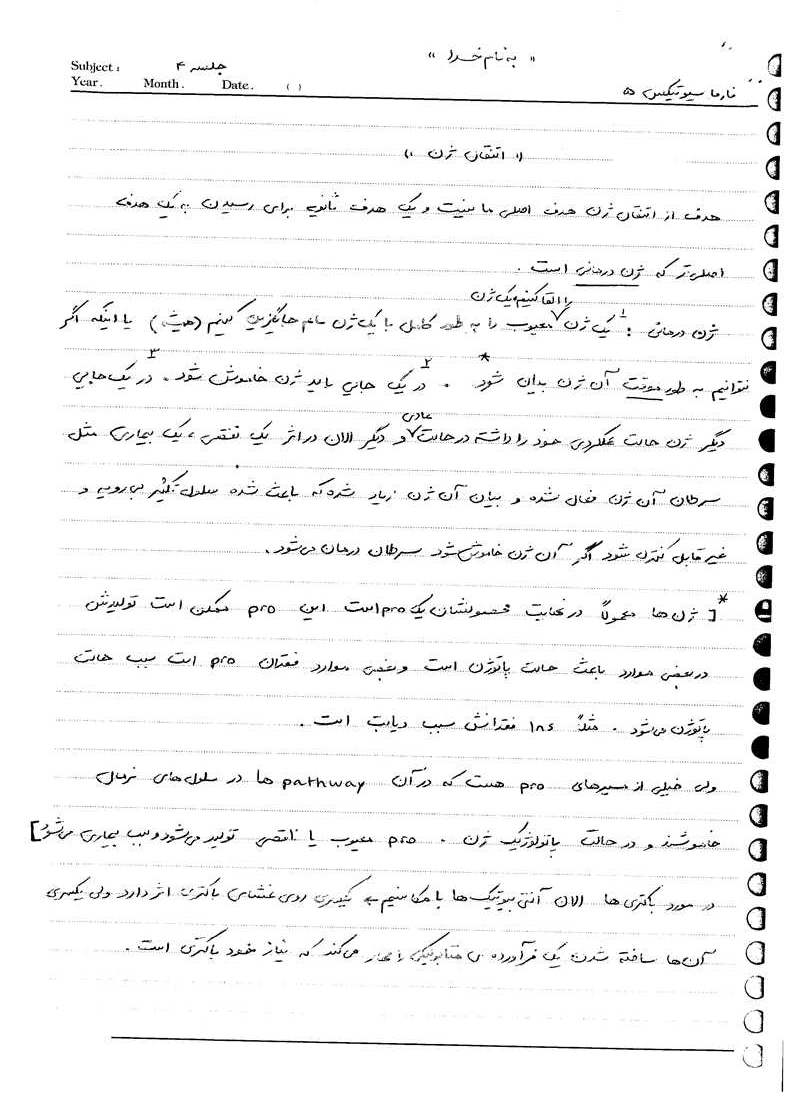 « به نام خدا »
Subject : جلسه ۴
Year . Month . Date . ( )
فارماسیوتیکس ۵
« انتقال ژن »
هدف از انتقال ژن هدف اصلی ما نیست و یک هدف ثانویه برای رسیدن به یک هدف
اصلی‌تر که ژن درمانی است .
را القا کنیم یک ژن
ژن درمانی : ۱ یک ژن ∨ معیوب را به طور کامل با یک ژن سالم جایگزین کنیم (همیشه) یا اینکه اگر
بتوانیم به طور موقت آن ژن بیان شود * . ۲ در یک جایی باید ژن خاموش شود . ۳ در یک جایی
عادی
دیگر ژن حالت عملکردی خود را داشته در حالت ∨ و دیگر الان در اثر یک نقص ، یک بیماری مثل
سرطان آن ژن فعال شده و بیان آن ژن زیاد شده که باعث شده سلول تکثیر بی‌رویه و
غیر قابل کنترل شود اگر آن ژن خاموش شود سرطان درمان می‌شود .
* [ ژن ها معمولاً در نهایت محصولشان یک pro است این pro ممکن است تولیدش
در بعضی موارد باعث حالت پاتوژن است و بعضی موارد فقدان pro است سبب حالت
پاتوژن می‌شود . مثلاً Ins فقدانش سبب دیابت است .
ولی خیلی از مسیرهای pro هست که در آن pathway ها در سلول‌های نرمال
خاموشند و در حالت پاتولوژیک ژن . pro معیوب یا ناقص تولید می‌شود و سبب بیماری می‌شود ]
در مورد باکتری ها الان آنتی بیوتیک ها با مکانیسم یه سری روی غشای باکتری اثر دارد ولی یکسری
آن‌ها ساخته شدن یک فرآورده ی متابولیکی را مهار می‌کند که نیاز خود باکتری است .